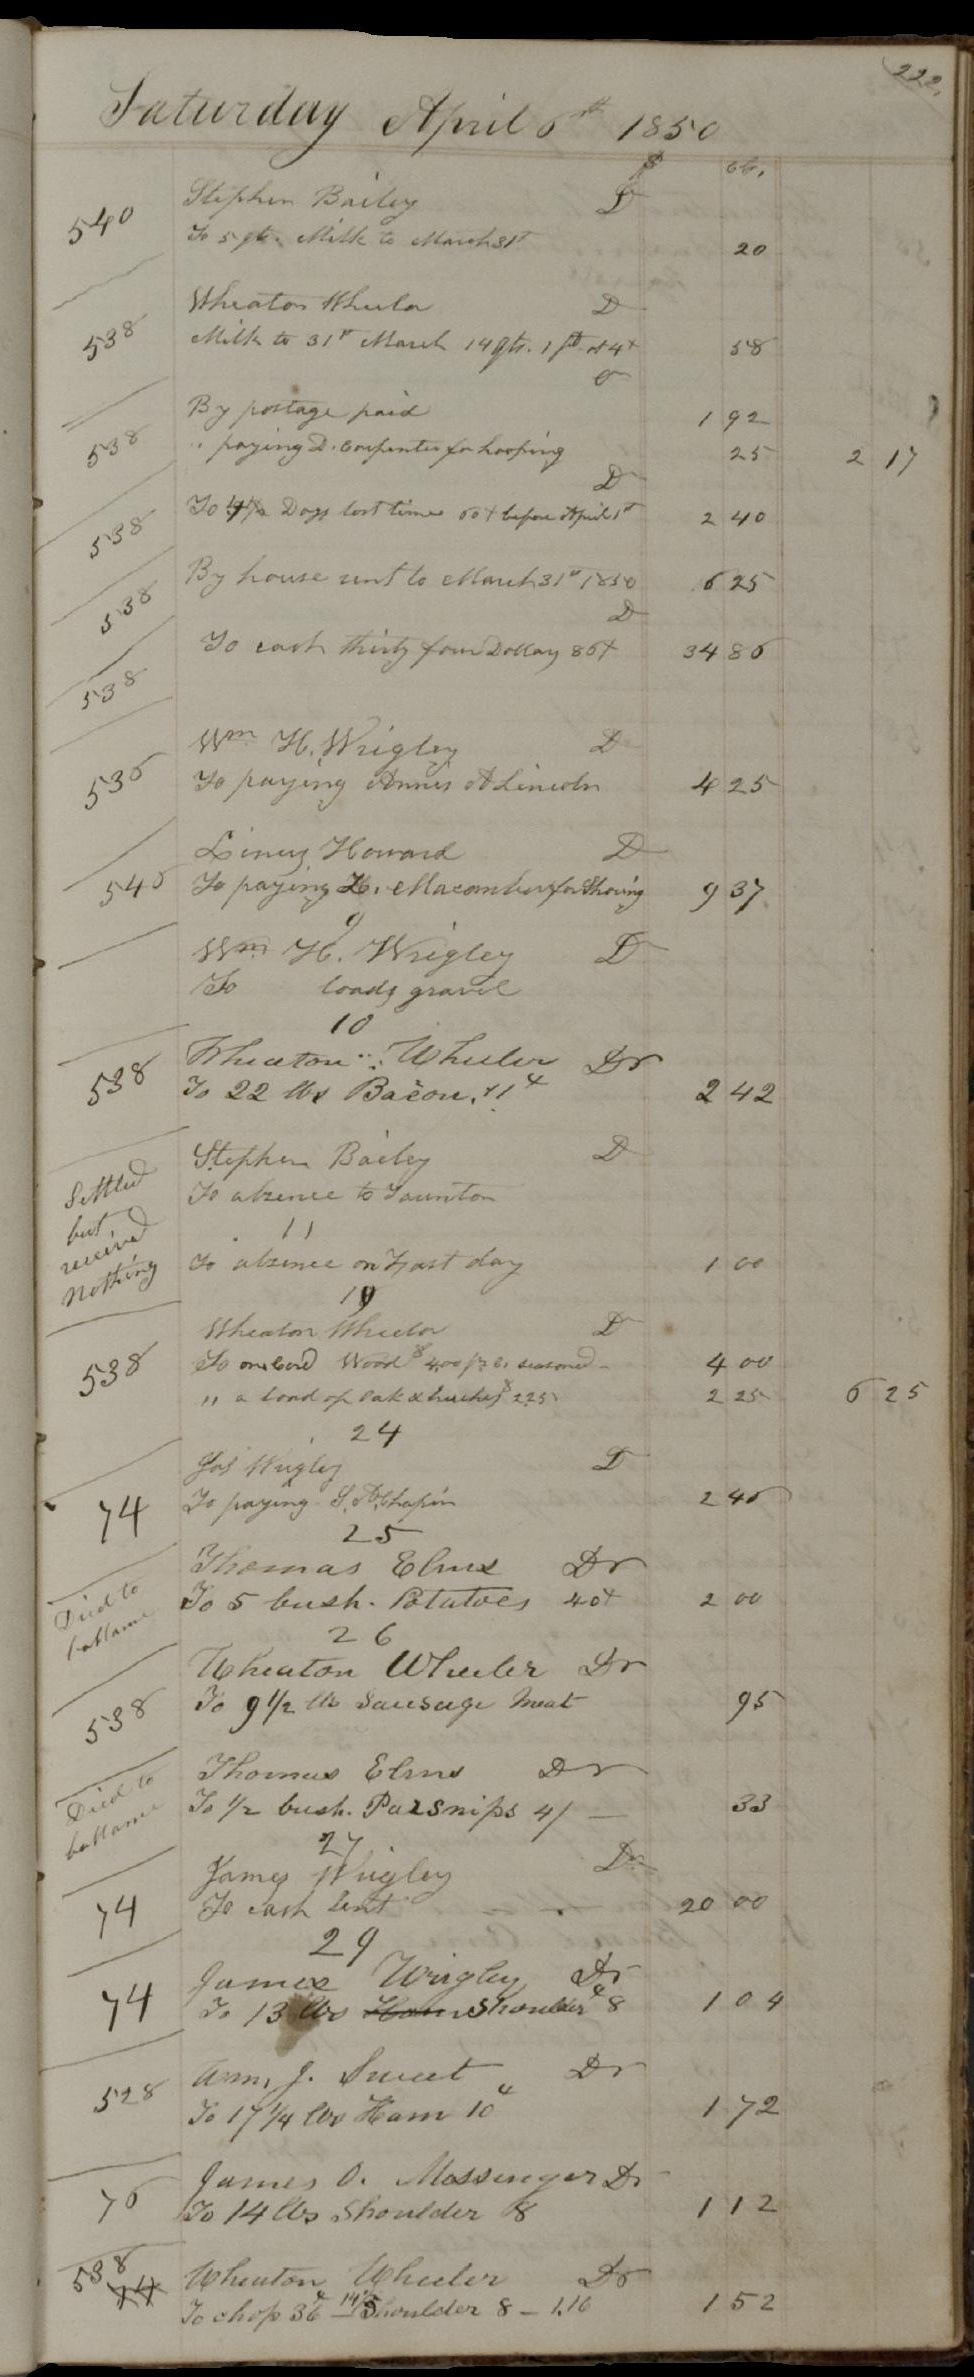 222.
Saturday April 6th 1850
$ cts.
Stephen Bailey D
540 To 5 qts. Milk to March 31st 20
Wheaton Wheeler D
538 Milk to 31st March 14 qts. 1 pt at 4+ 58
Cr
By postage paid 1 92
538 " paying D. Carpenter for hooping 25 2 17
D
538 To 4 Days lost time 60+ before April 1st 2 40
538 By house rent to March 31st 1850 6 25
D
538 To cash thirty four Dollars 86+ 34 86
Wm H. Wrigley D
536 To paying Annis A Lincoln 4 25
Linus Howard D
546 To paying H. Macomber for Shoeing 9 37
9
Wm H. Wrigley D
To loads gravel
10
538 Wheaton Wheeler Dr
To 22 lbs Bacon. 11 2 42
Stephen Bailey D
Settled but received nothing
To absence to Taunton
11
To absence on Fast day 1 00
19
Wheaton Wheeler D
538 To one cord Wood $4,00 seasoned 4 00
" a load of oak & $2.25 2 25 6 25
24
Jas Wrigley D
74 To paying S. A. Chapin 2 46
25
Thomas Elms Dr
Died to
To 5 bush. Potatoes 40+ 2 00
26
Wheaton Wheeler Dr
538 To 9 1/2 lb Sausage Meat 95
Thomas Elms Dr
Died to
To 1/2 bush. Parsnips 4/ — 33
27
James Wrigley Dr
74 To cash lent 20 00
29
James Wrigley Dr
74 To 13 lbs Ham Shoulder 8 1 04
Wm. J. Sweet Dr
528 To 17 1/4 lbs Ham 10 1 72
James O. Messinger Dr
76 To 14 lbs Shoulder 8 1 12
538 74 Wheaton Wheeler Dr
To chop 36 14 1/2 Shoulder 8 – 1.16 1 52